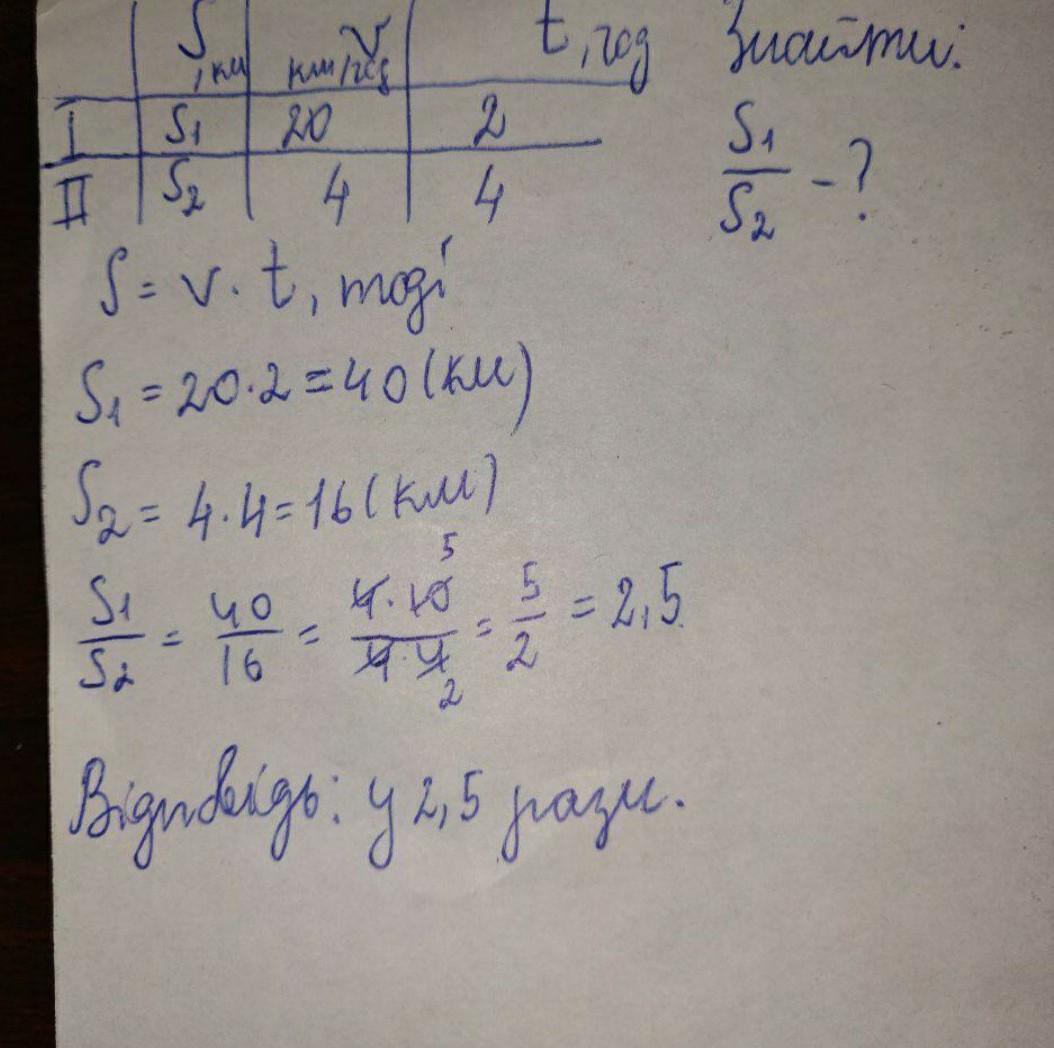 S, км v км/год t, год Знайти:
I S1 20 2
II S2 4 4
S1/S2 - ?
S = v · t, тоді
S1 = 20 · 2 = 40 (км)
S2 = 4 · 4 = 16 (км)
S1/S2 = 40/16 = 4·10/4·4 = 5/2 = 2,5
5
2
Відповідь: у 2,5 рази.